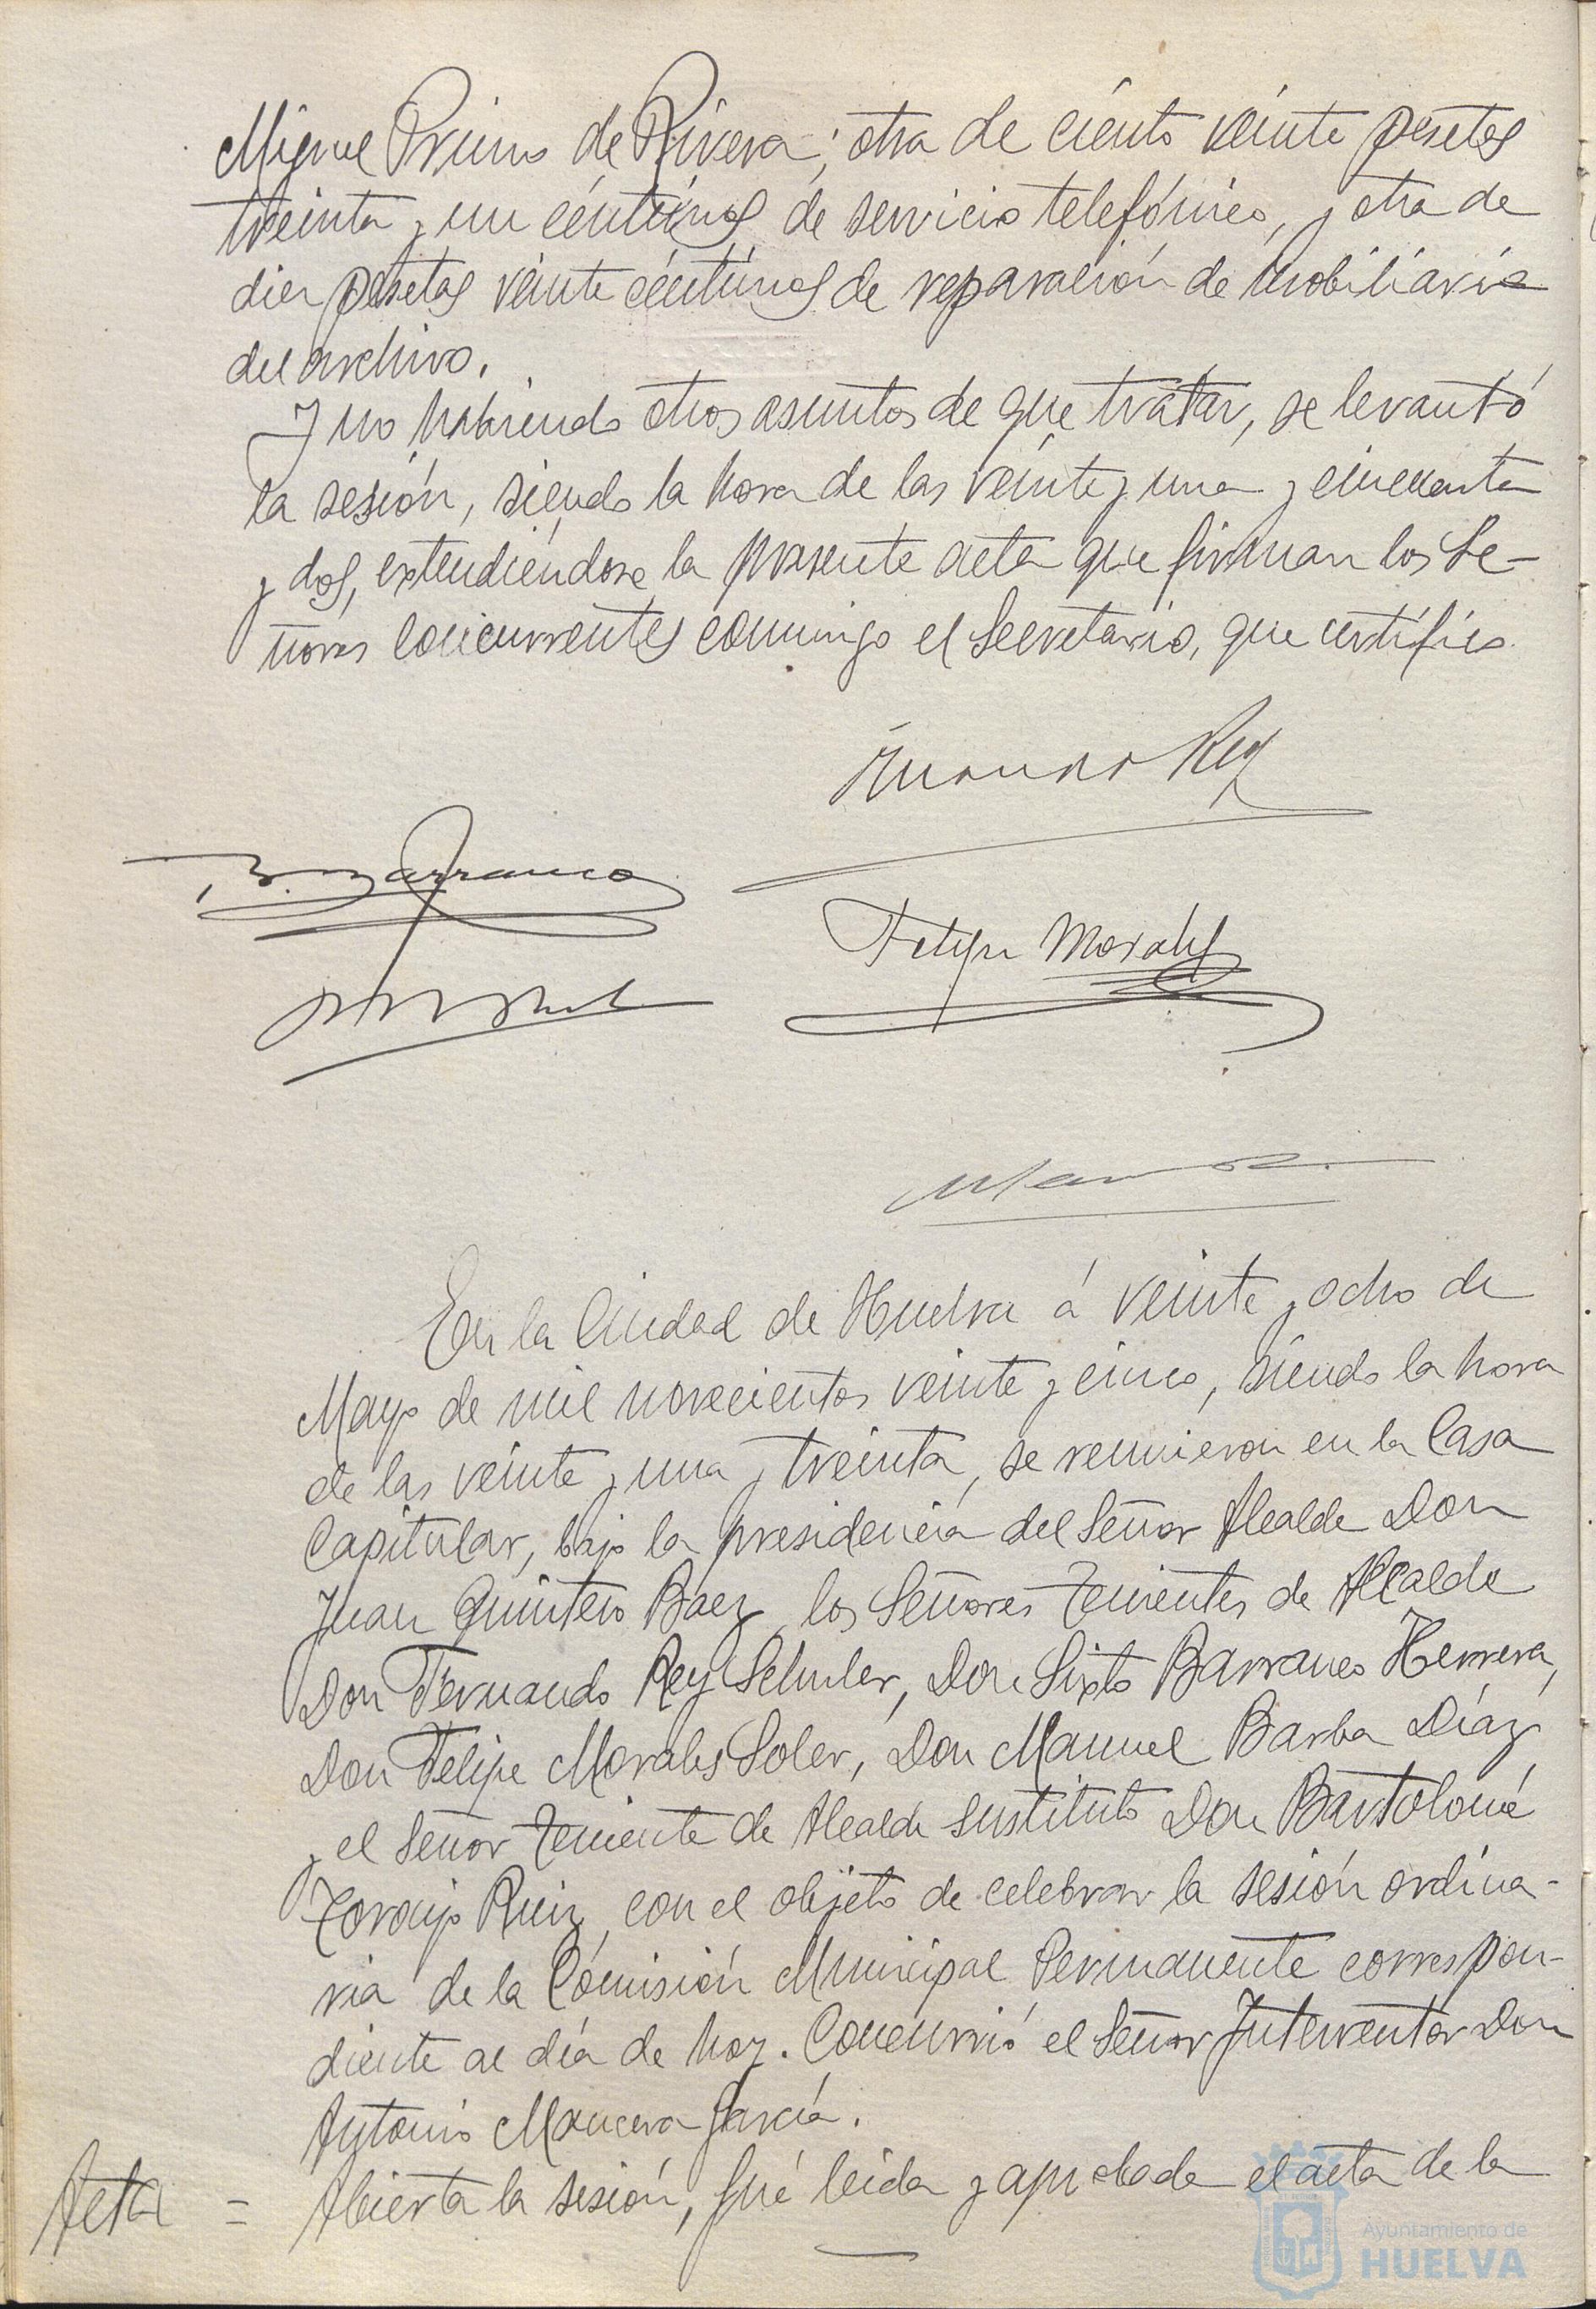 Miguel Primo de Rivera; otra de ciento veinte pesetas
treinta y un céntimos de servicio telefónico, y otra de
diez pesetas veinte céntimos de reparación de mobiliario
del archivo.
Y no habiendo otros asuntos de que tratar, se levantó
la sesión, siendo la hora de las veinte y una y cincuenta
y dos, extendiéndose la presente acta que firman los Se-
ñores concurrentes conmigo el Secretario, que certifico.
Fernando Rey
S. Barranco
Felipe Morales
En la Ciudad de Huelva á veinte y ocho de
Mayo de mil novecientos veinte y cinco, siendo la hora
de las veinte y una y treinta, se reunieron en la Casa
Capitular, bajo la presidencia del Señor Alcalde Don
Juan Quintero Baez, los Señores Tenientes de Alcalde
Don Fernando Rey Schuler, Don Sixto Barranco Herrera,
Don Felipe Morales Soler, Don Manuel Barba Díaz,
y el Señor Teniente de Alcalde sustituto Don Bartolomé
Toronjo Ruiz, con el objeto de celebrar la sesión ordina-
ria de la Comisión Municipal Permanente correspon-
diente al día de hoy. Concurrió el Señor Interventor Don
Antonio Mancera García.
Acta = Abierta la sesión, fué leida y aprobada el acta de la
Ayuntamiento de
HUELVA